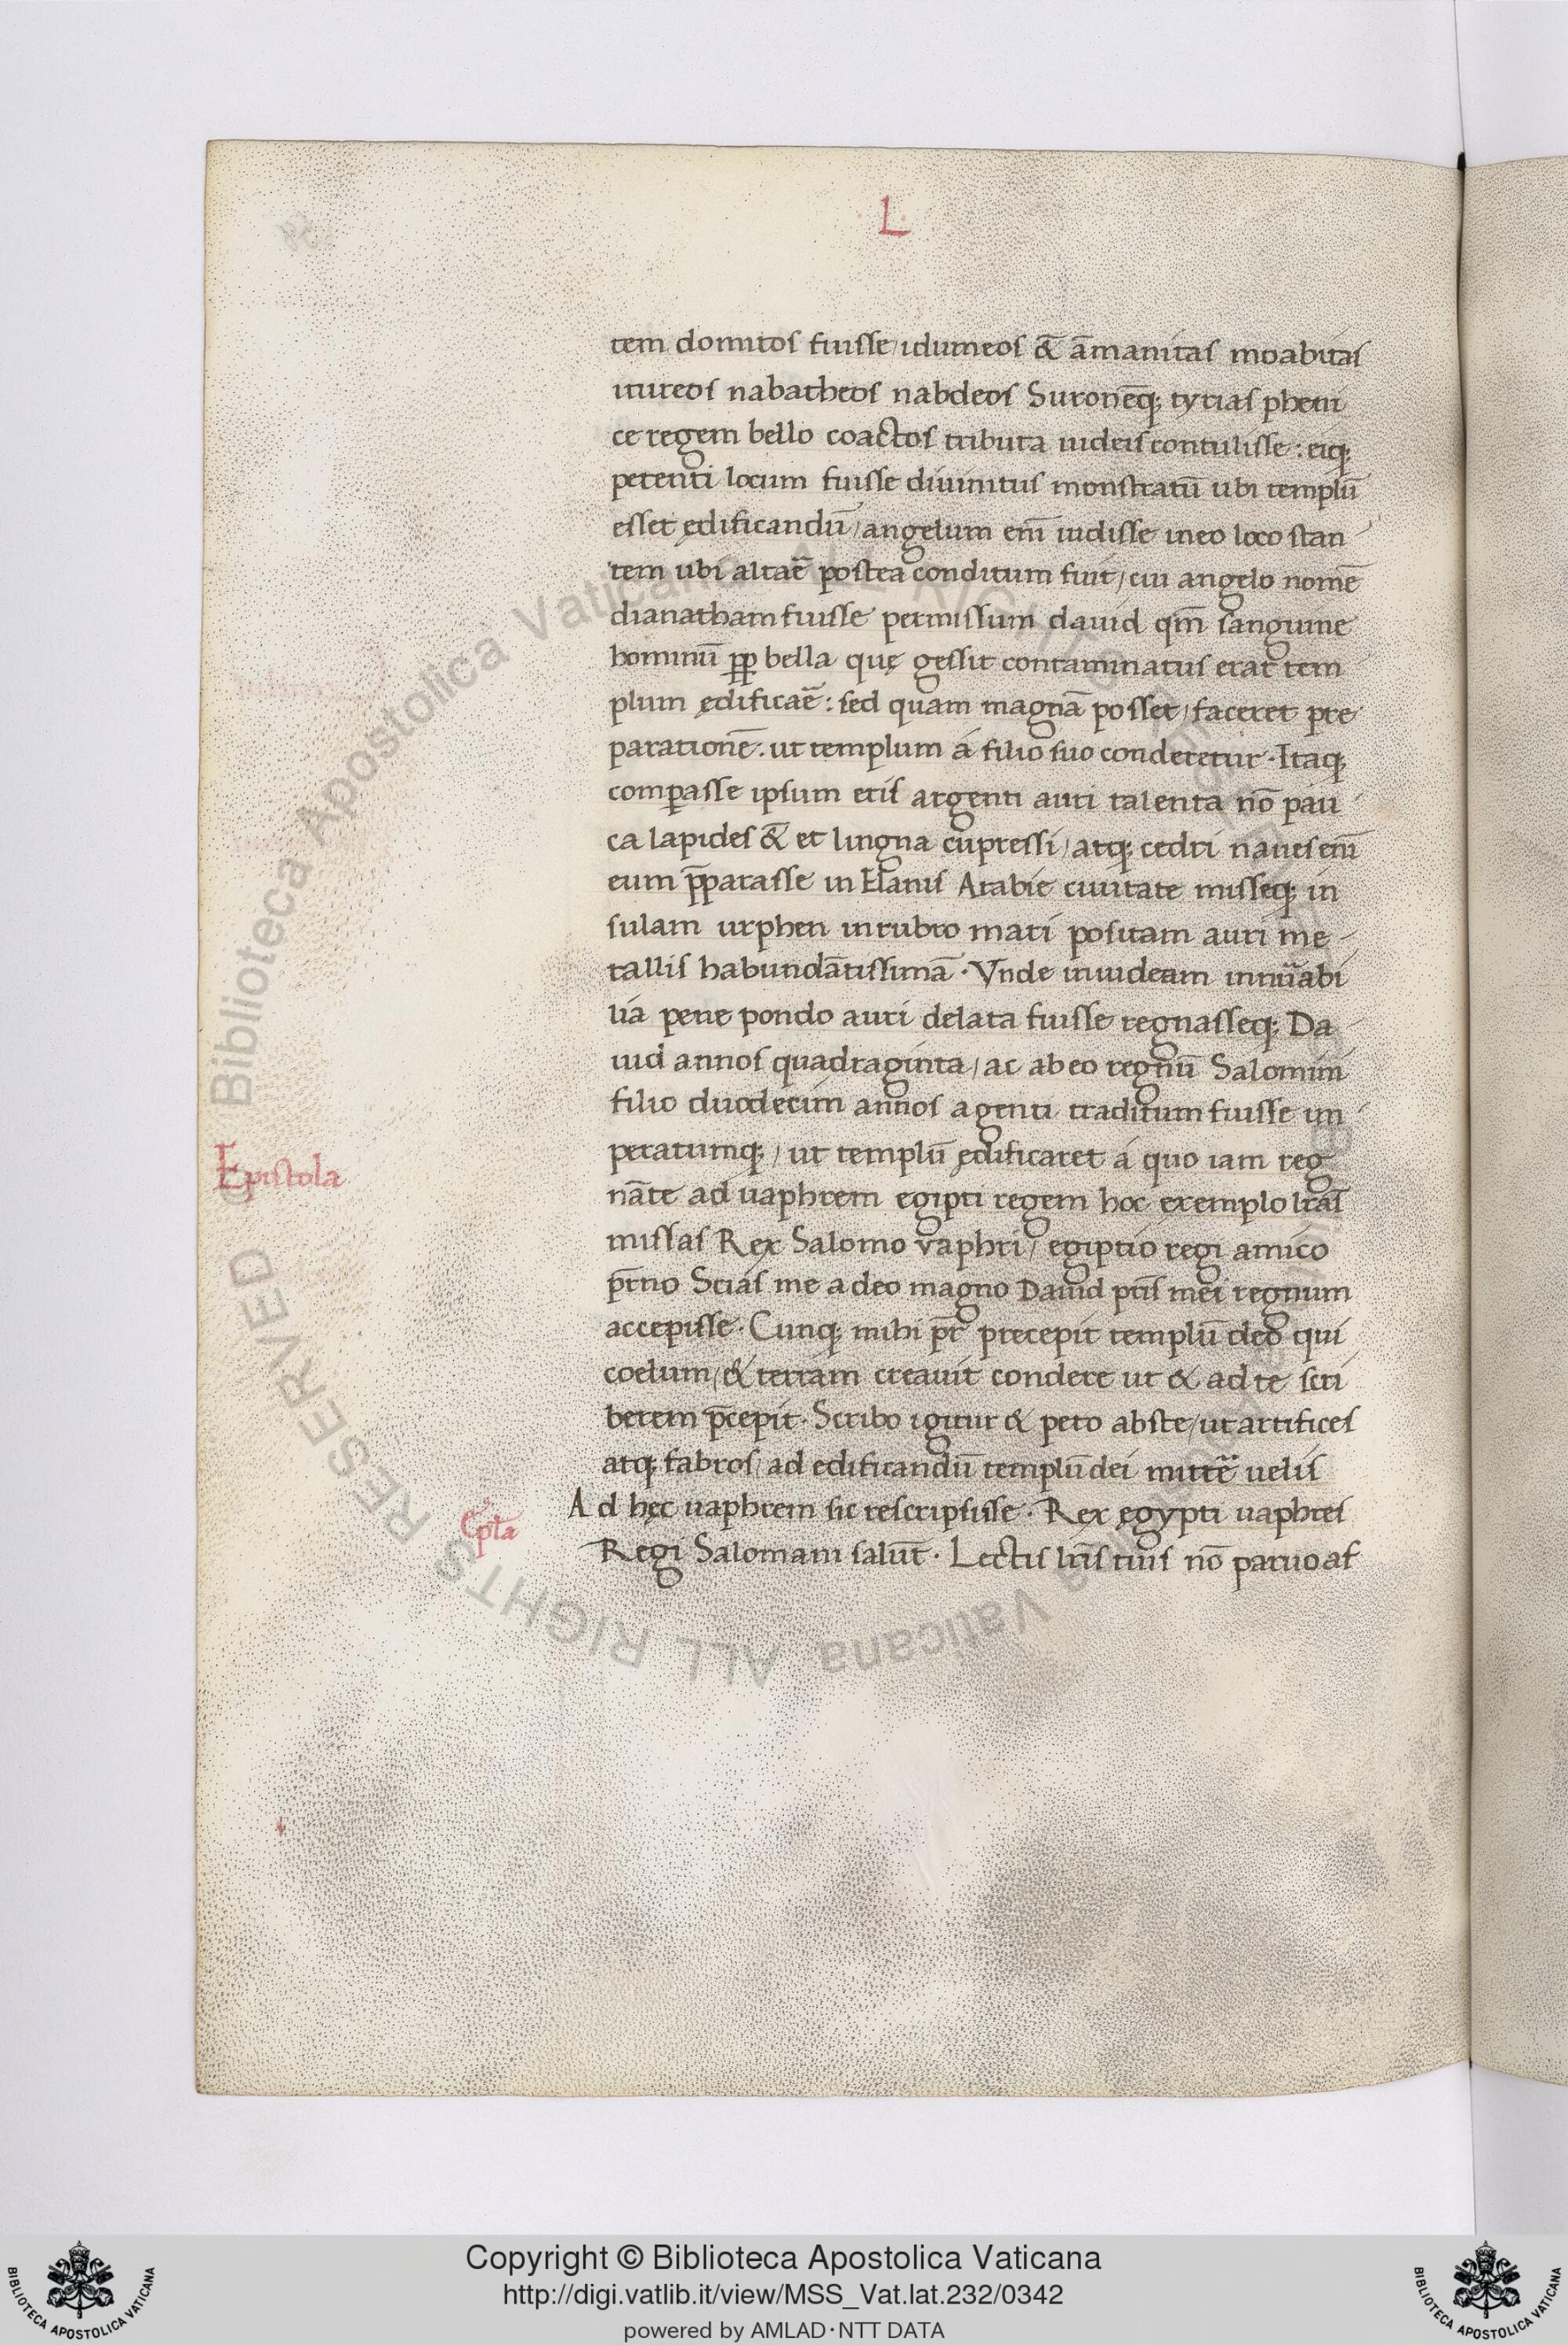 L
tem domitos fuisse, idumeos &̄ āmanitas moabitas
itureos nabatheos nabdeos Suronēq; tyrias pheni
ce regem bello coactos tributa iudeis contulisse: eiq;
petenti locum fuisse divinitus monstratū ubi templū
esset ędificandū, angelum em̄ vidisse in eo loco stan
tem ubi altaē postea conditum fuit, cui angelo nomē
dianatham fuisse permissum dauid qm̄ sanguine
hominū ꝓꝑ bella quę gessit contaminatus erat tem
plum ędificaē: sed quam magnā posset, faceret pre
parationē. ut templum á filio suo conderetur. Itaq;
comꝑasse ipsum eris argenti auri talenta nō pau
ca lapides &̄ et lingna cupressi, atq; cedri naues em̄
eum p̄parasse in Elanis Arabie ciuitate misseq; in
sulam urphen in rubro mari positam auri me-
tallis habundātissimā. Vnde in iudeam innūabi
lia pene pondo auri delata fuisse regnasseq; Da
uid annos quadraginta, ac ab eo regnū Salomini
filio duodecim annos agenti traditum fuisse im
peratumq;, ut templū ędificaret á quo iam reg
nāte ad uaphrem egipti regem hoc exemplo lr̄as
missas Rex Salomo vaphri, egiptio regi amico
pr̄no Scias me a deo magno Dauid pr̄is mei regnum
accepisse. Cunq; mihi pr̄ precepit templū deo qui
coelum, & terram creauit condere ut & ad te scri
berem p̄cepit. Scribo igitur & peto abste, ut artifices
atq; fabros, ad edificandū templū dei mittē uelis
Epistola
Ad hęc uaphrem sic rescripsisse. Rex ęgypti uaphres
Ep̄la
Regi Salomani salut̄. Lectis lr̄is tuis nō paruo af
Biblioteca Apostolica Vaticana ALL RIGHTS RESERVED
Copyright © Biblioteca Apostolica Vaticana
http://digi.vatlib.it/view/MSS_Vat.lat.232/0342
powered by AMLAD·NTT DATA
BIBLIOTECA APOSTOLICA VATICANA
BIBLIOTECA APOSTOLICA VATICANA